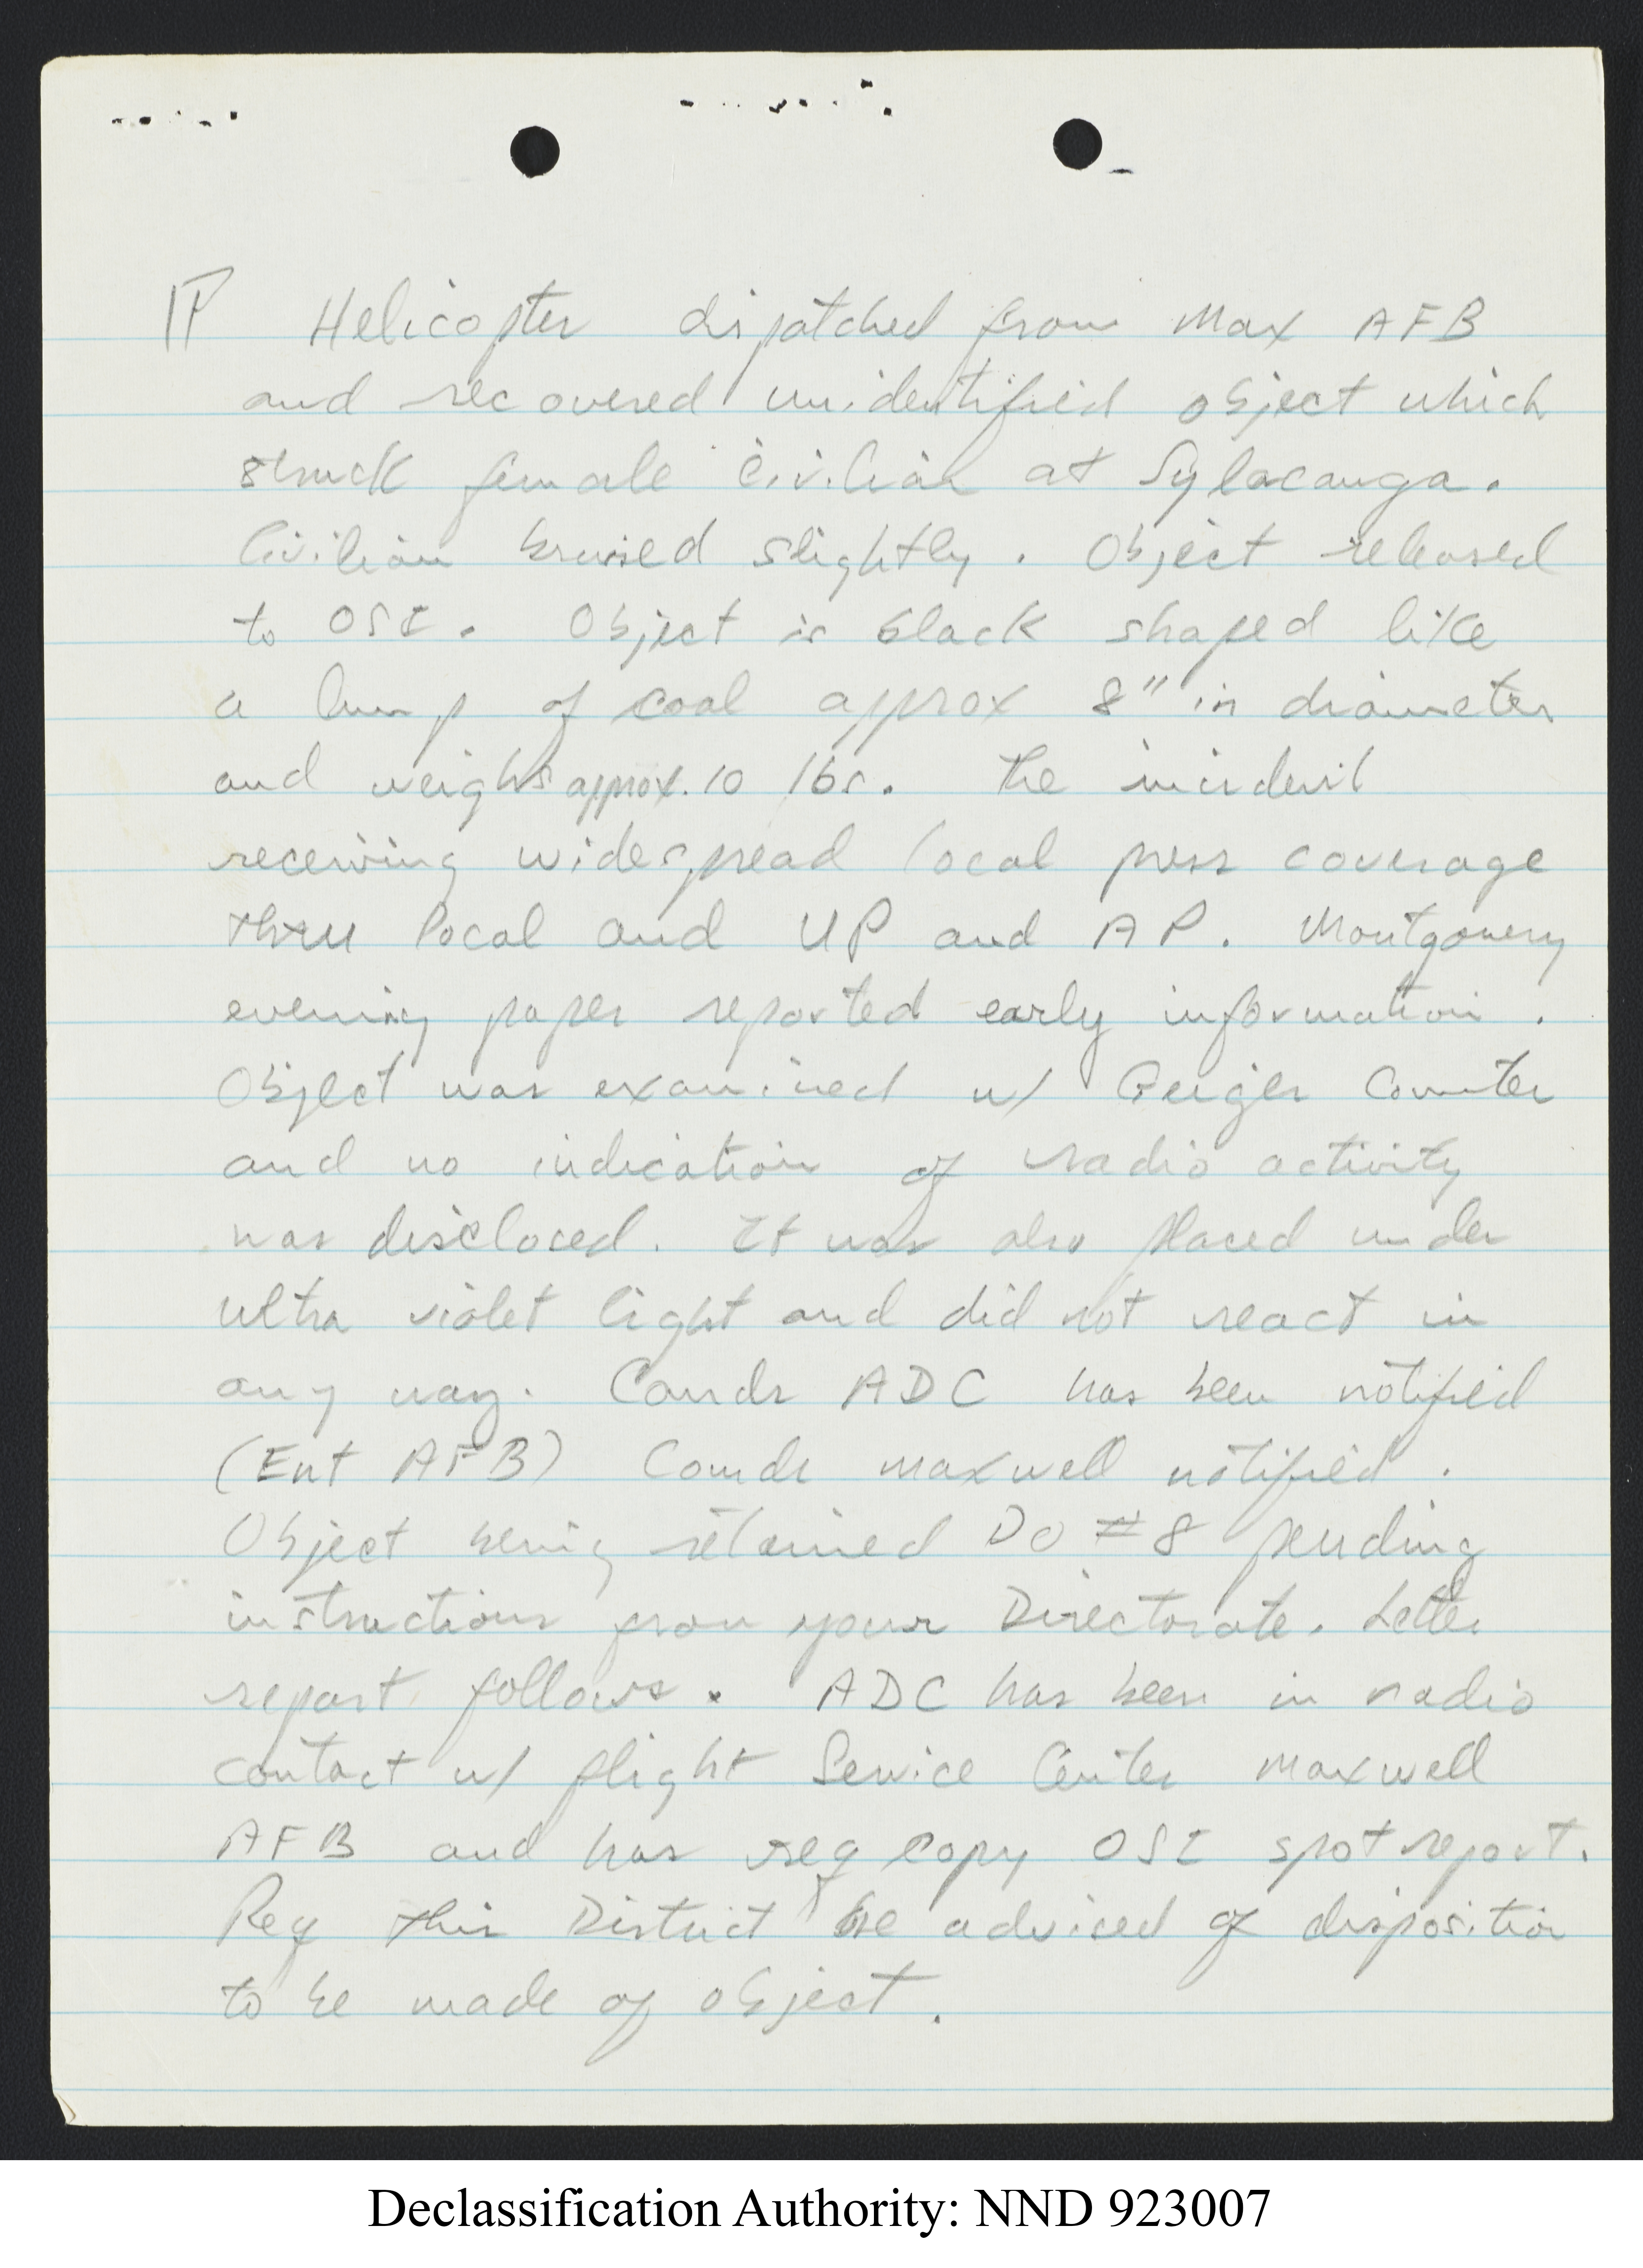 ¶ Helicopter dispatched from Max AFB
and recovered unidentified object which
struck female civilian at Sylacauga.
Civilian bruised slightly. Object released
to OSI. Object is black shaped like
a lump of coal approx 8" in diameter
and weighs approx. 10 lbs. The incident
receiving widespread local press coverage
thru local and UP and AP. Montgomery
evening paper reported early information.
Object was examined w/ Geiger Counter
and no indication of radio activity
was disclosed. It was also placed under
ultra violet light and did not react in
any way. Comdr ADC has been notified
(Ent AFB) Comdr Maxwell notified.
Object being retained DO #8 pending
instructions from your Directorate. Letter
report follows. ADC has been in radio
contact w/ flight Service Center Maxwell
AFB and has req copy OSI spot report.
Req this District be advised of disposition
to be made of object.
Declassification Authority: NND 923007